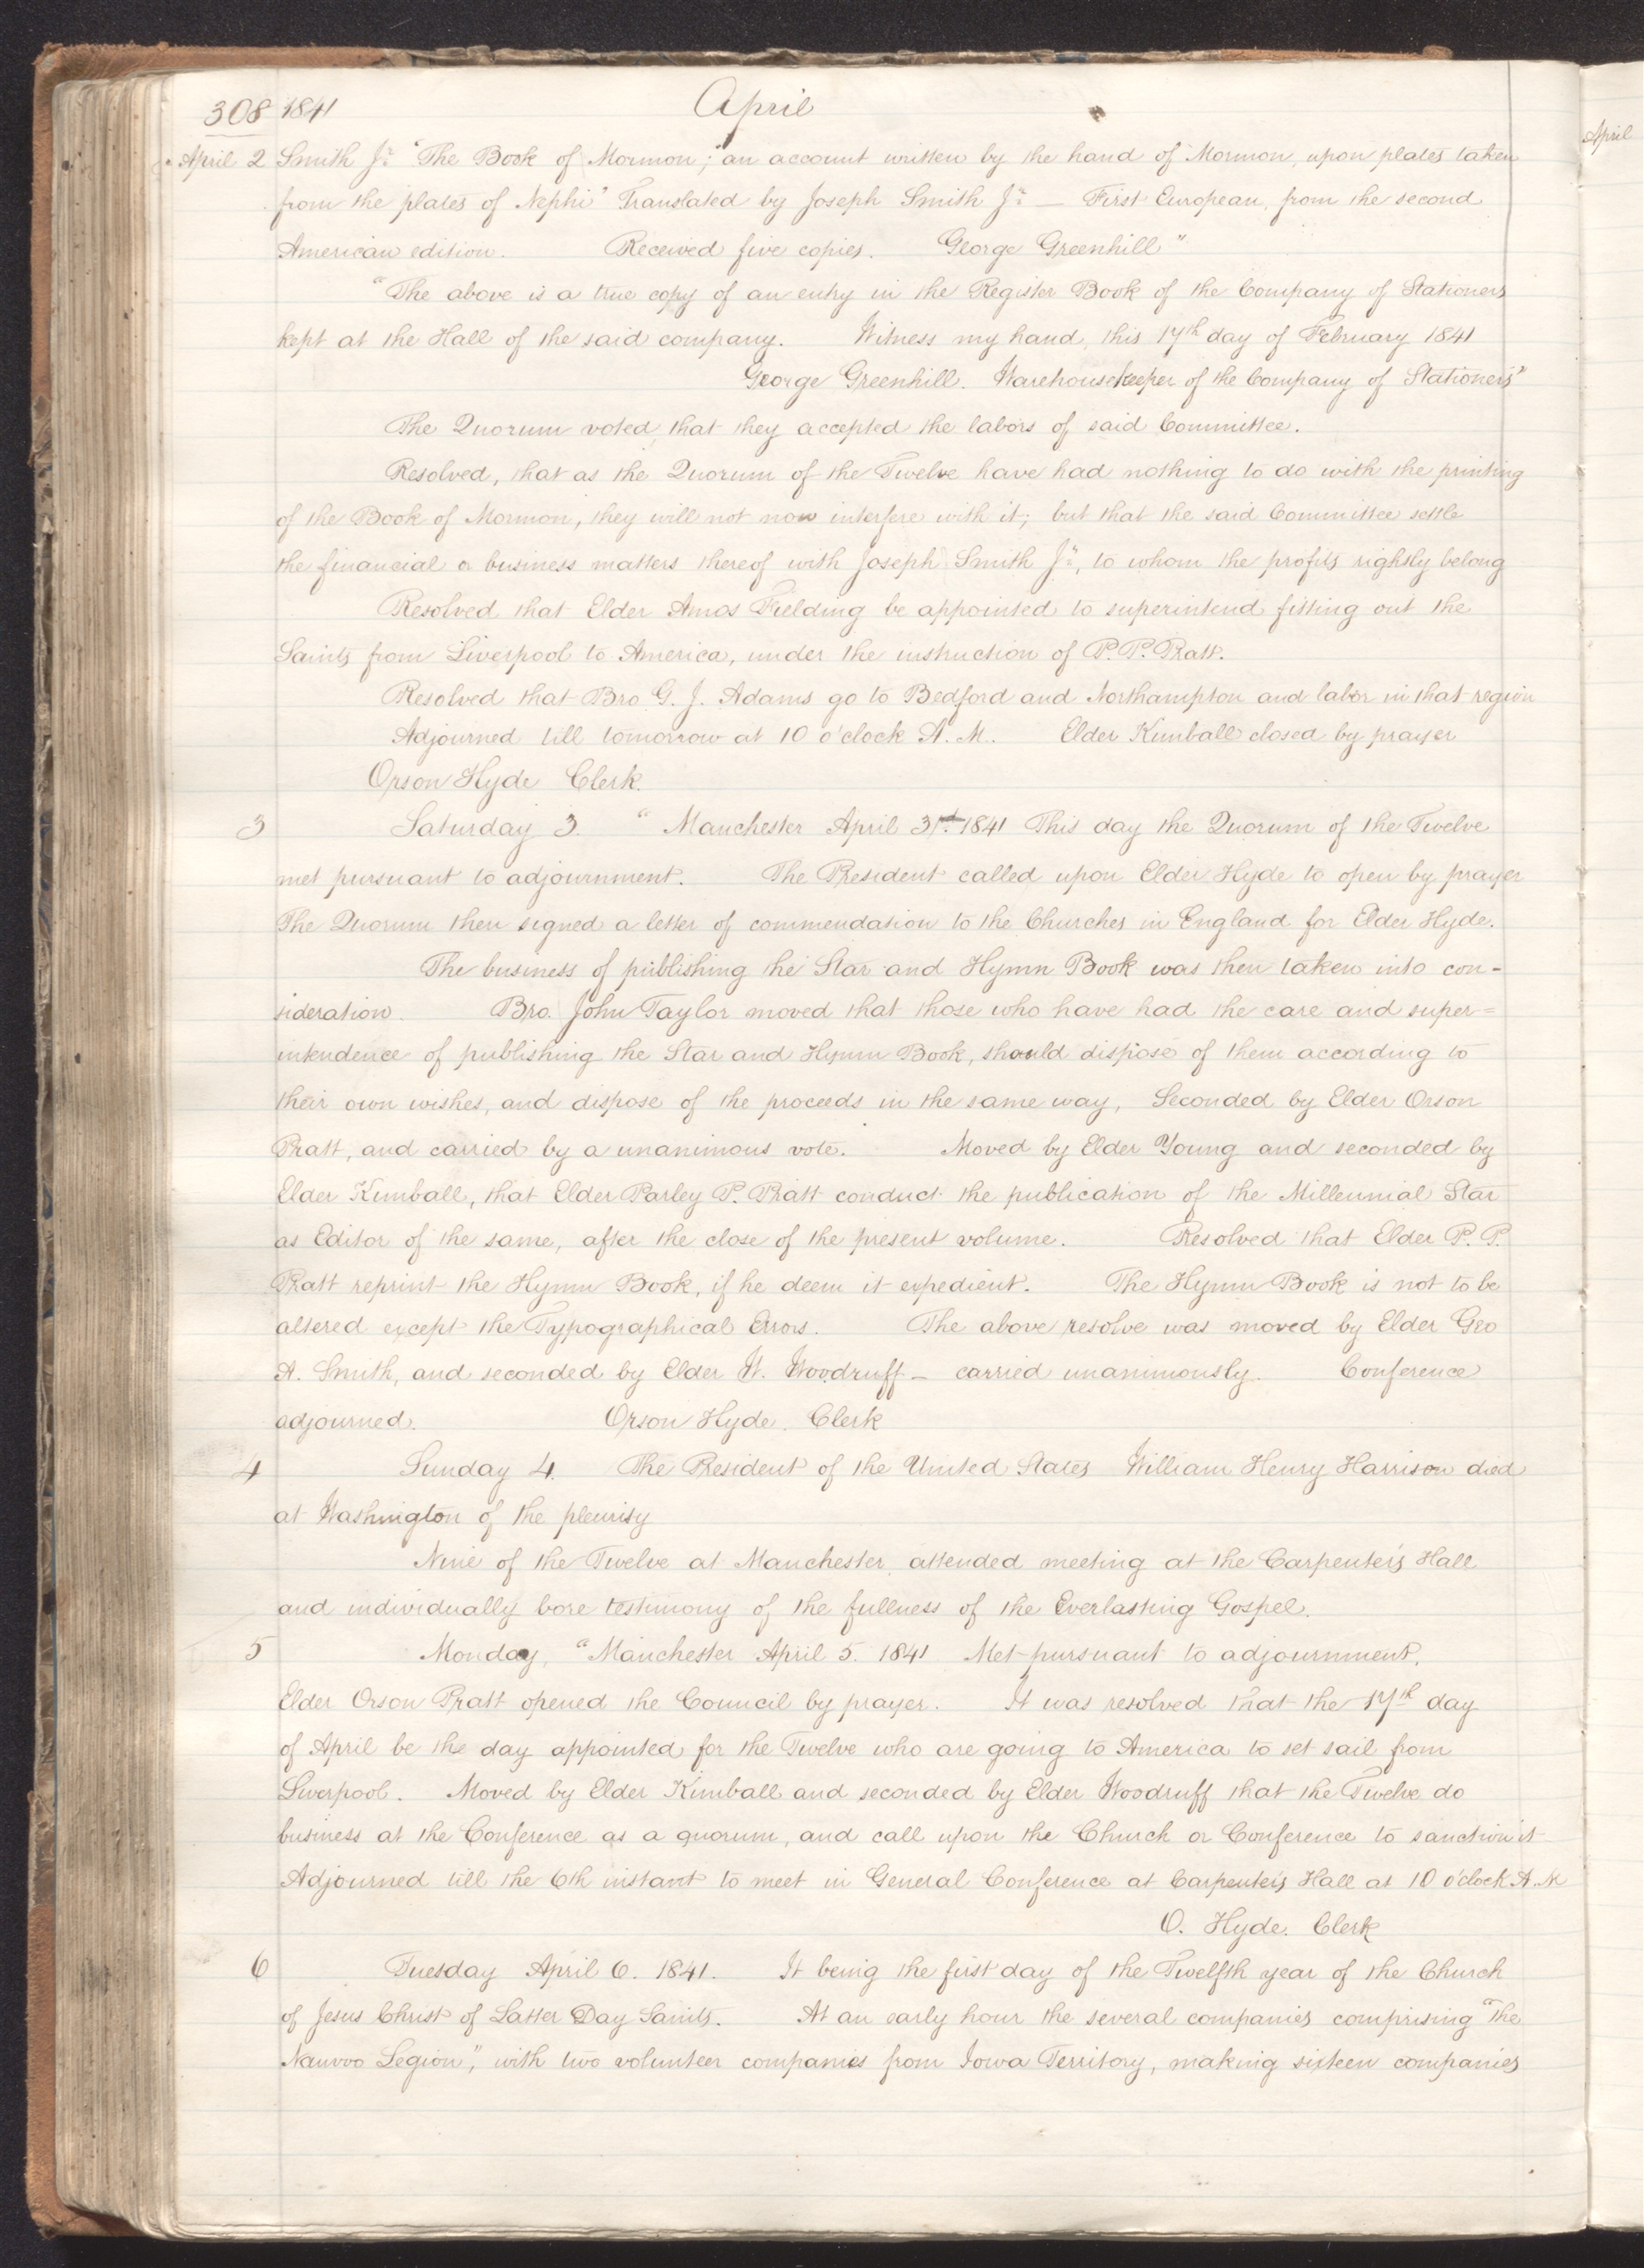 308 1841 April
April 2 Smith Jr. "The Book of Mormon; an account written by the hand of Mormon, upon plates taken
from the plates of Nephi" Translated by Joseph Smith Jr. — First European, from the second
American edition. Received five copies. George Greenhill"
"The above is a true copy of an entry in the Register Book of the Company of Stationers
kept at the Hall of the said company. Witness my hand, this 17th day of February 1841
George Greenhill. Warehousekeeper of the Company of Stationers"
The Quorum voted, that they accepted the labors of said Committee.
Resolved, that as the Quorum of the Twelve have had nothing to do with the printing
of the Book of Mormon, they will not now interfere with it; but that the said Committee settle
the financial or business matters thereof with Joseph Smith Jr., to whom the profits rightly belong
Resolved that Elder Amos Fielding be appointed to superintend fitting out the
Saints from Liverpool to America, under the instruction of P. P. Pratt.
Resolved that Bro G. J. Adams go to Bedford and Northampton and labor in that region
Adjourned till tomorrow at 10 o'clock A. M. Elder Kimball closed by prayer
Orson Hyde Clerk.
3 Saturday 3. "Manchester April 3rd 1841 This day the Quorum of the Twelve
met pursuant to adjournment. The President called upon Elder Hyde to open by prayer
The Quorum then signed a letter of commendation to the Churches in England for Elder Hyde.
The business of publishing the Star and Hymn Book was then taken into con-
sideration. Bro. John Taylor moved that those who have had the care and super=
intendence of publishing the Star and Hymn Book, should dispose of them according to
their own wishes, and dispose of the proceeds in the same way, Seconded by Elder Orson
Pratt, and carried by a unanimous vote. Moved by Elder Young and seconded by
Elder Kimball, that Elder Parley P. Pratt conduct the publication of the Millennial Star
as Editor of the same, after the close of the present volume. Resolved that Elder P. P.
Pratt reprint the Hymn Book, if he deem it expedient. The Hymn Book is not to be
altered except the Typographical Errors. The above resolve was moved by Elder Geo
A. Smith, and seconded by Elder W. Woodruff — carried unanimously. Conference
adjourned. Orson Hyde. Clerk
4 Sunday 4. The President of the United States William Henry Harrison died
at Washington of the pleurisy
Nine of the Twelve at Manchester, attended meeting at the Carpenter's Hall
and individually bore testimony of the fullness of the Everlasting Gospel.
5 Monday, "Manchester April 5. 1841 Met pursuant to adjournment.
Elder Orson Pratt opened the Council by prayer. It was resolved that the 17th day
of April be the day appointed for the Twelve who are going to America to set sail from
Liverpool. Moved by Elder Kimball and seconded by Elder Woodruff that the Twelve do
business at the Conference as a quorum, and call upon the Church or Conference to sanction it
Adjourned till the 6th instant to meet in General Conference at Carpenter's Hall at 10 o'clock A. M
O. Hyde. Clerk
6 Tuesday April 6. 1841. It being the first day of the Twelfth year of the Church
of Jesus Christ of Latter Day Saints. At an early hour the several companies comprising "The
Nauvoo Legion", with two volunteer companies from Iowa Territory, making sixteen companies
April